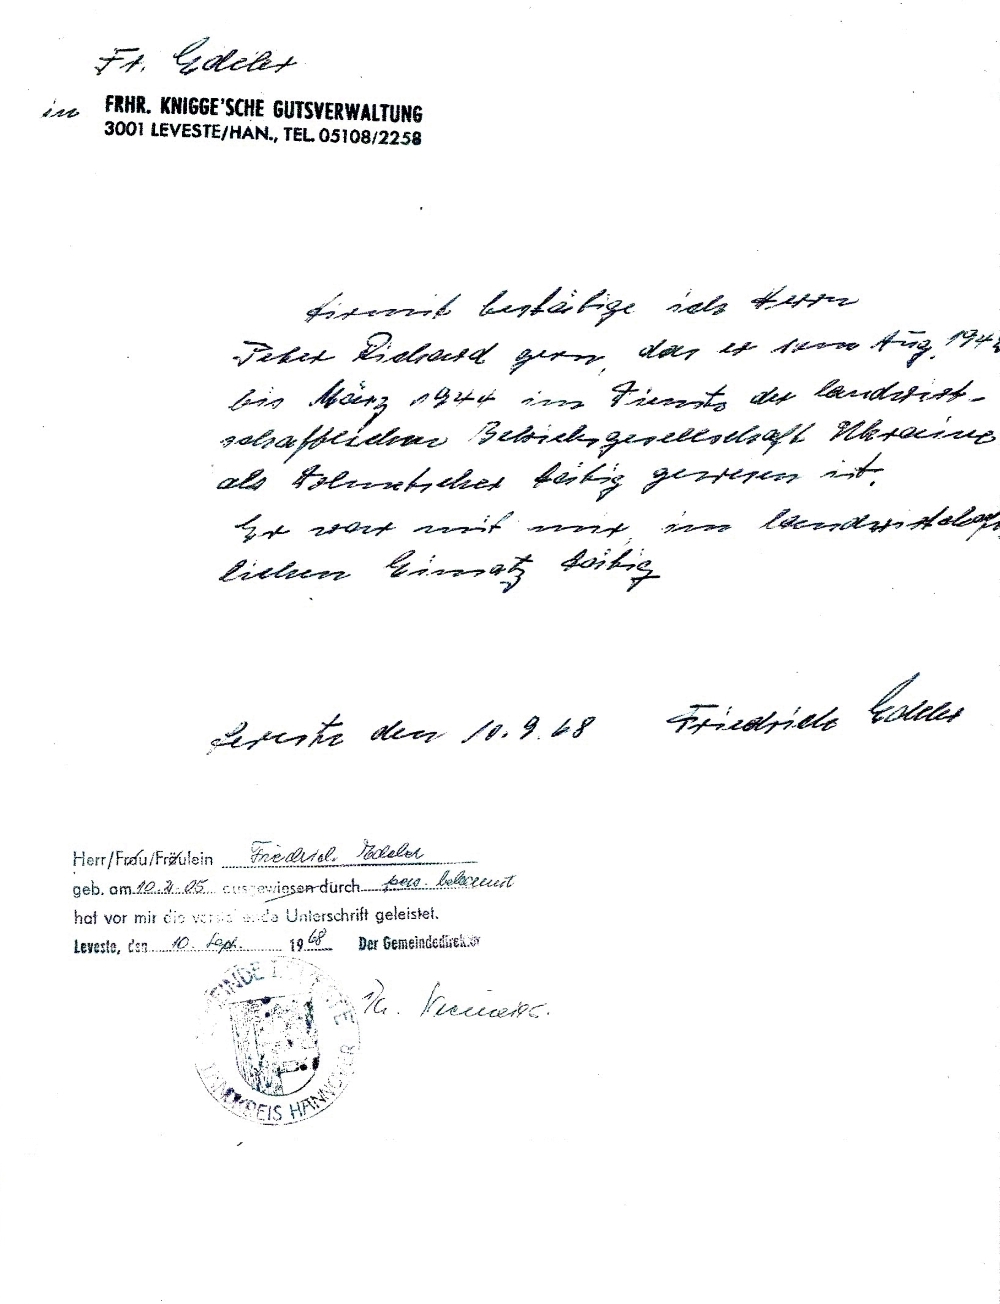 Fr. Edeler
in FRHR. KNIGGE'SCHE GUTSVERWALTUNG
3001 LEVESTE/HAN., TEL. 05108/2258
Hiermit bestätige ich Herrn
Peter Richard gern, das er vom Aug. 194
bis März 1944 im Dienste der landwirt-
schaftlichen Betriebsgesellschaft Ukraine
als Dolmetscher tätig gewesen ist.
Er war mit mir im landwirtschaft
lichen Einsatz tätig
Leveste den 10.9.68 Friedrich Edeler
Herr/Frau/Fräulein Friedrich Edeler
geb. am 10. 05 ausgewiesen durch pers. bekannt
hat vor mir die vorstehende Unterschrift geleistet.
Leveste, den 10. Sept. 1968 Der Gemeindedirektor
GEMEINDE LEVESTE
LANDKREIS HANNOVER